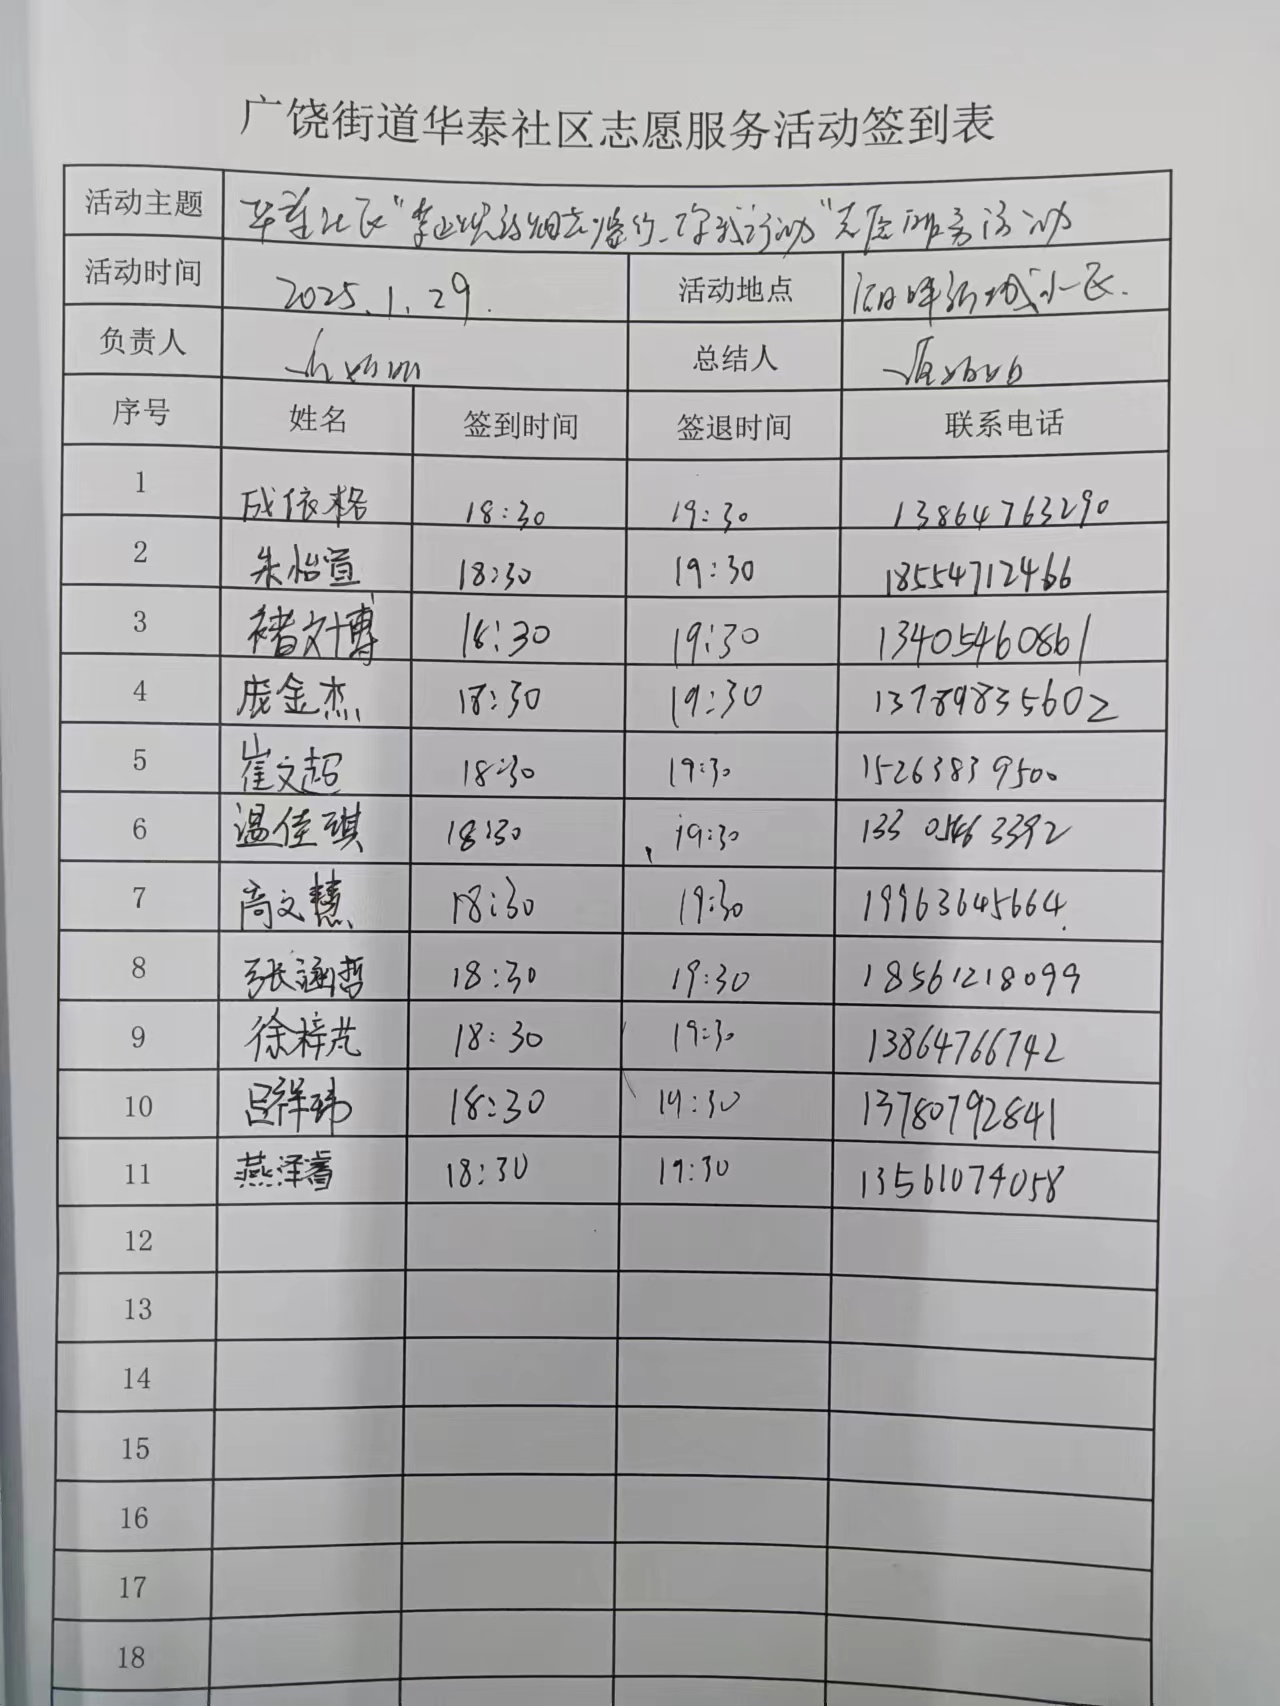 广饶街道华泰社区志愿服务活动签到表
活动主题 华泰社区“禁止燃放烟花爆竹 你我行动”志愿服务活动
活动时间 2025.1.29. 活动地点 小区.
负责人 总结人
序号 姓名 签到时间 签退时间 联系电话
1 成依格 18:30 19:30 13864763290
2 朱怡萱 18:30 19:30 18554712466
3 褚文博 18:30 19:30 13405460861
4 庞金杰 18:30 19:30 13789835602
5 崔文超 18:30 19:30 15263839500
6 温佳琪 18:30 19:30 13305463392
7 高文慧 18:30 19:30 19963645664
8 张涵哲 18:30 19:30 18561218099
9 徐梓芃 18:30 19:30 13864766742
10 吕祥玮 18:30 19:30 13780792841
11 燕泽睿 18:30 19:30 13561074058
12
13
14
15
16
17
18